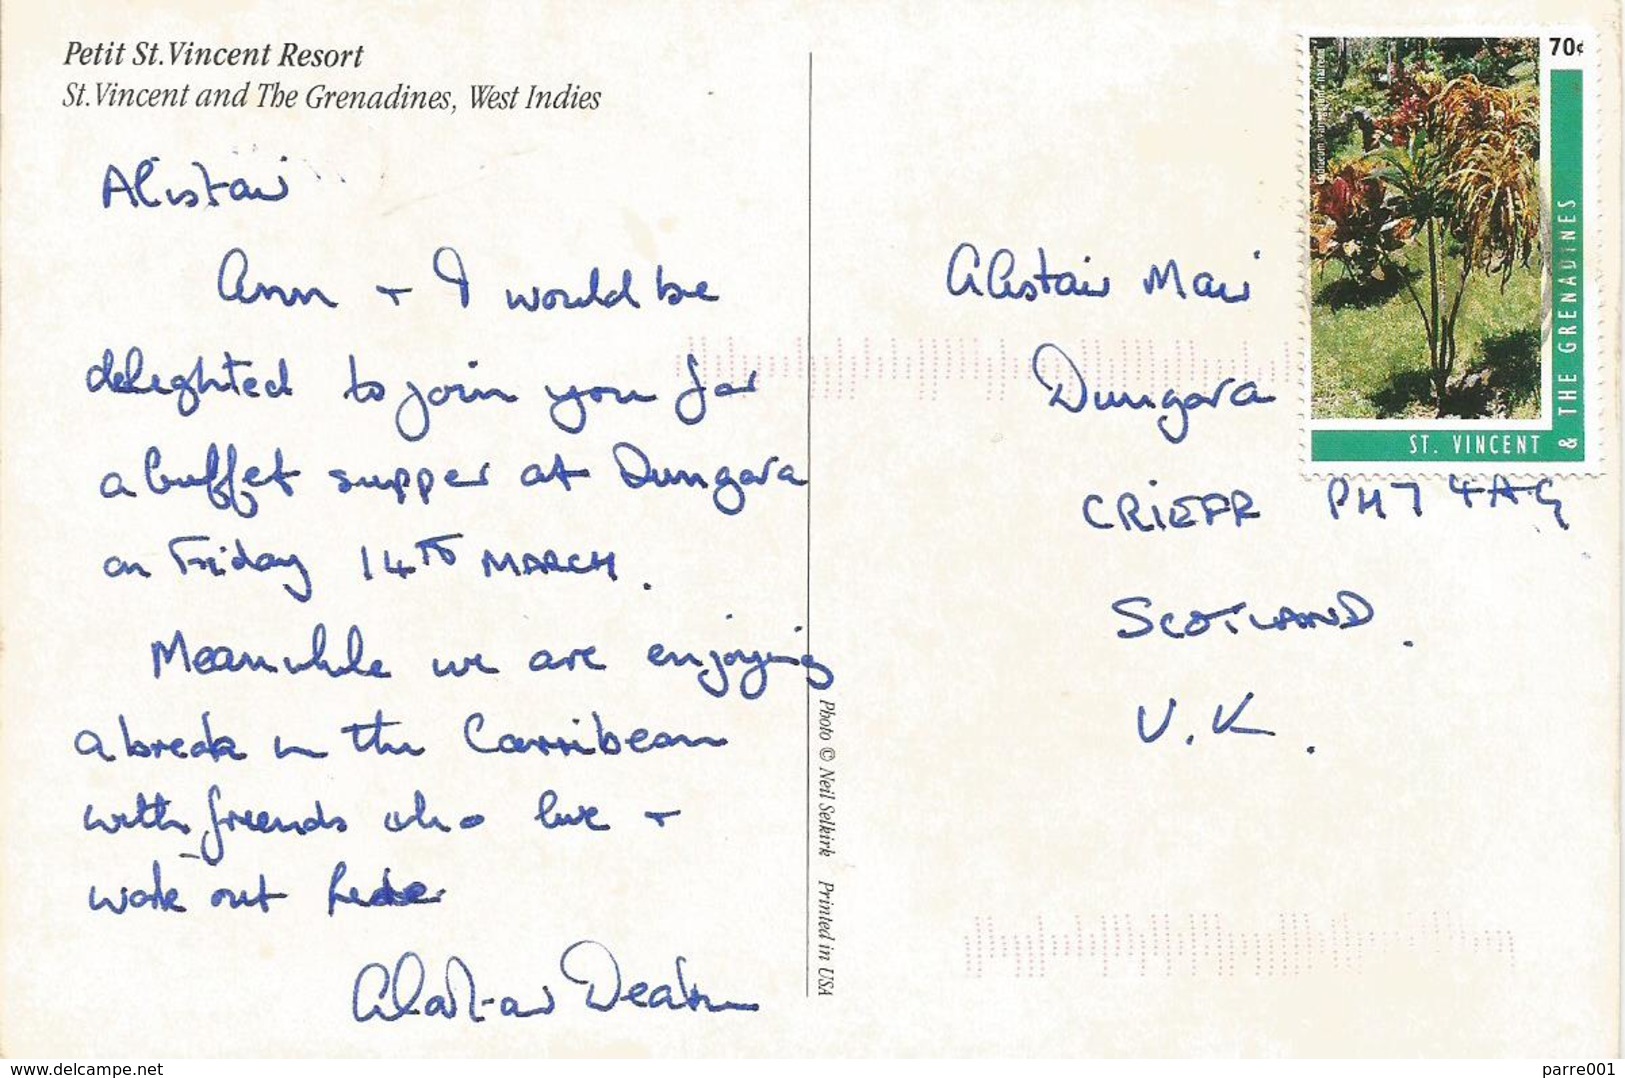 Petit St.Vincent Resort
St.Vincent and The Grenadines, West Indies
Alistair
Ann + I would be
delighted to join you for
a buffet supper at Dungora
on Friday 14th MARCH.
Meanwhile we are enjoying
a break in the Carribean
with friends who live +
work out here
Alastair
Photo © Neil Selkirk    Printed in USA
70¢
ST. VINCENT
& THE GRENADINES
Alistair Mair
Dungora
CRIEFF PH7 4AG
SCOTLAND.
U.K.
www.delcampe.net
parre001